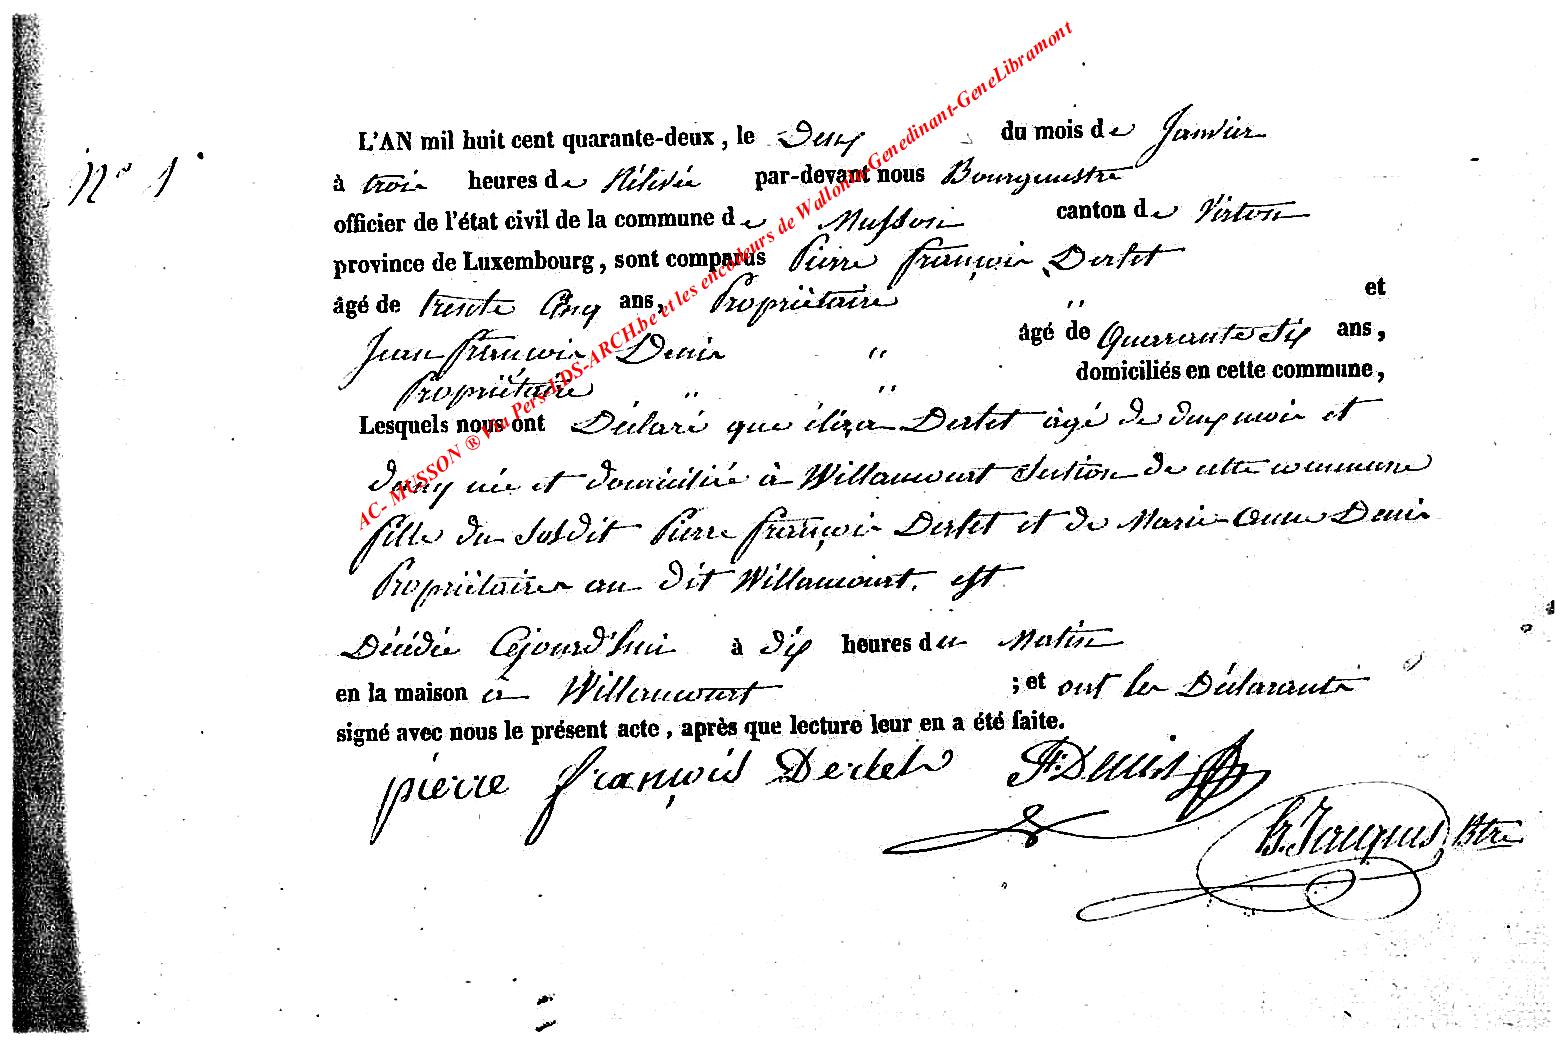 N° 1.
L'AN mil huit cent quarante-deux, le Deux du mois de Janvier
à trois heures de Rélévée par-devant nous Bourgmestre
officier de l'état civil de la commune de Musson canton de Virton
province de Luxembourg, sont comparus Pierre François Dertet
âgé de trente Cinq ans, Propriétaire " et
Jean François Denis " âgé de Quarante Six ans,
Propriétaire " " domiciliés en cette commune,
Lesquels nous ont Déclaré que éliza Dertet âgé de deux mois et
demy née et domiciliée à Willancourt Section de cette commune
fille du Susdit Pierre François Dertet et de Marie Anne Denis
Propriétaires au dit Willancourt. est
Décédée Cejourd'hui à dix heures du Matin
en la maison à Willancourt ; et ont les Déclarants
signé avec nous le présent acte, après que lecture leur en a été faite.
pierre françois Dertet JF. Denis
Jacques Btre
AC- MUSSON ® Via Pers-LDS-ARCH.be et les encodeurs de Wallonia-Genedinant-GeneLibramont